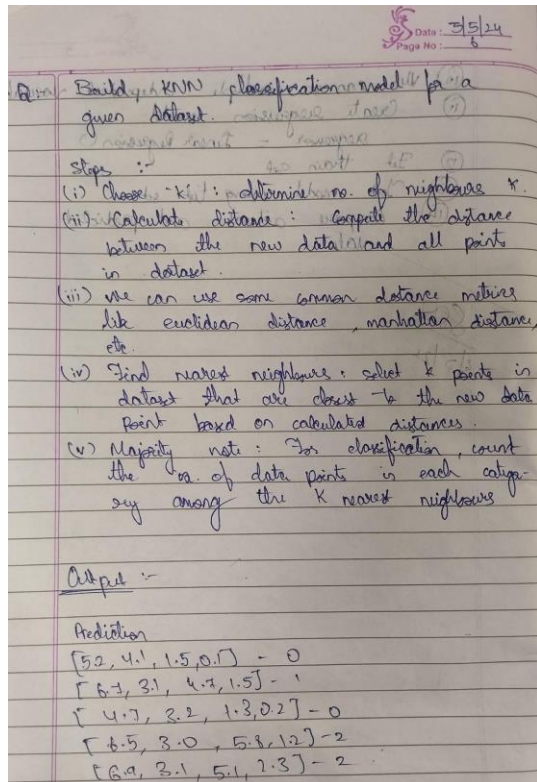 Date: 3/5/24
Page No: 6
Build KNN classification model for a
given dataset.
Steps :-
(i) Choose 'K' : determine no. of neighbours K.
(ii) Calculate distance : Compute the distance
between the new data and all point
in dataset.
(iii) we can use some common distance metrics
like euclidean distance, manhattan distance,
etc.
(iv) Find nearest neighbours : select K points in
dataset that are closest to the new data
point based on calculated distances.
(v) Majority note : For classification, count
the no. of data points in each catego-
ry among the K nearest neighbours
Output :-
Prediction
[5.2, 4.1, 1.5, 0.1] - 0
[6.7, 3.1, 4.7, 1.5] - 1
[4.7, 3.2, 1.3, 0.2] - 0
[6.5, 3.0, 5.8, 1.2] - 2
[6.9, 3.1, 5.1, 2.3] - 2